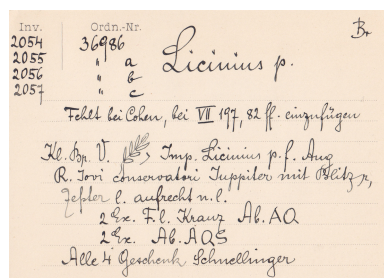 Inv. Ordn.-Nr. Br
2054 36986 Licinius p.
2055 " a
2056 " b
2057 " c
Fehlt bei Cohen, bei VII 197, 82 ff. einzufügen
Kl. Br. V. Imp. Licinius p. f. Aug
R. Iovi conservatori Juppiter mit Blitz r,
Zepter l. aufrecht n. l.
2 Ex. F. l. Kranz Ab. AQ
2 Ex. Ab. AQS
Alle 4 Geschenk Schnellinger